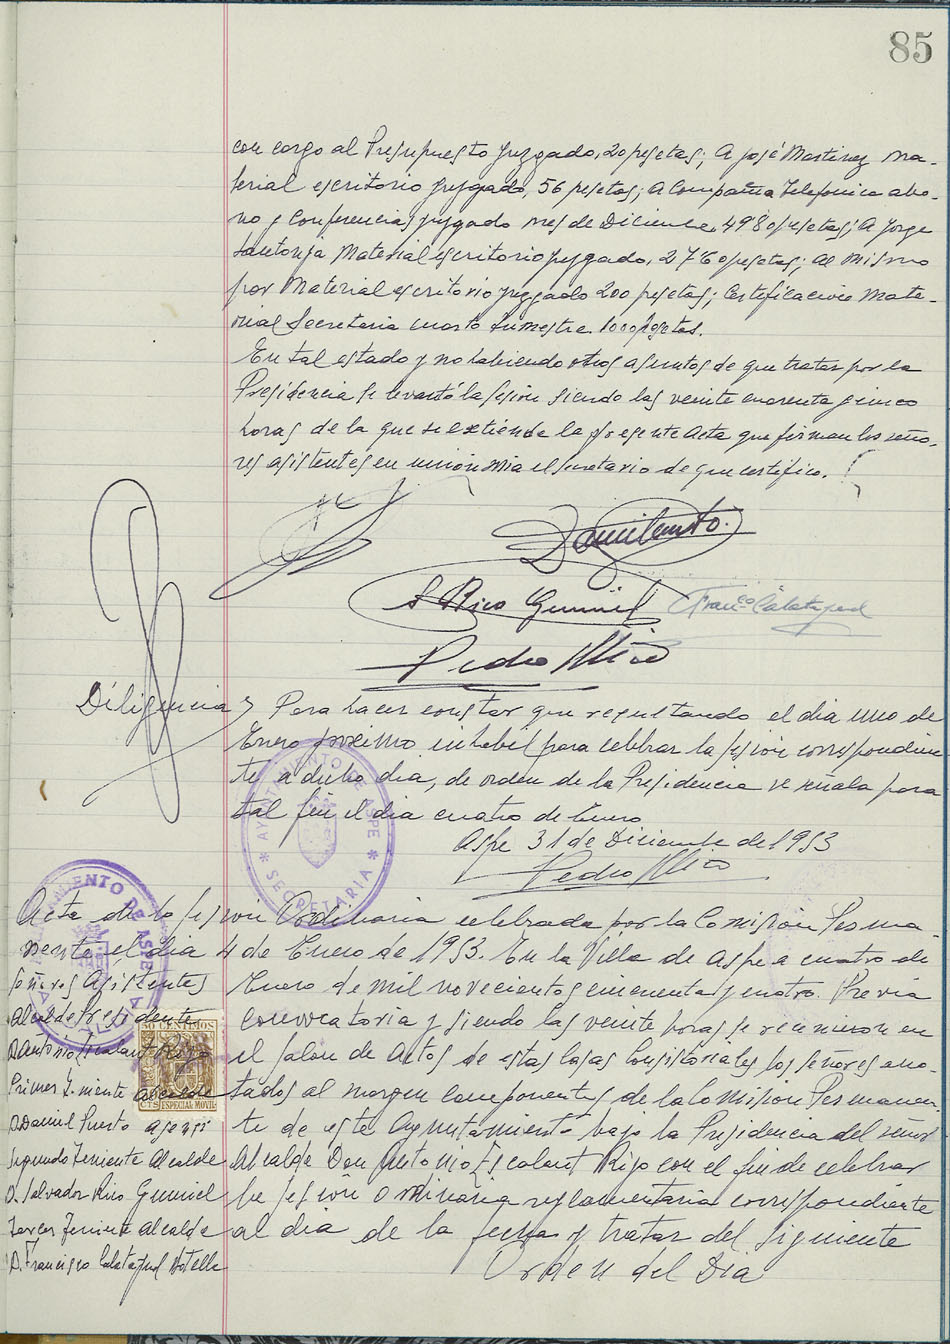 85
con cargo al Presupuesto Juzgado, 20 pesetas; A José Martinez Ma-
terial escritorio Juzgado, 56 pesetas; A Compañia Telefonica abo-
no y Conferencias Juzgado mes de Diciembre, 49'80 pesetas; A Jorge
Santonja Material escritorio Juzgado, 27'60 pesetas; Al Mismo
por Material escritorio Juzgado 200 pesetas; Certificacion Mate-
rial Secretaria cuarto trimestre. 1000 pesetas.
En tal estado y no habiendo otros asuntos de que tratar por la
Presidencia se levantó la sesion siendo las veinte cuarenta y cinco
horas de la que se extiende la presente Acta que firman los seño-
res asistentes en union mia el Secretario de que certifico.
Daniel Puerto
S. Rico Gumiel
Franco Calatayud
Pedro Mira
Diligencia
Para hacer constar que resultando el dia uno de
Enero proximo inhabil para celebrar la sesion correspondien-
te a dicho dia, de orden de la Presidencia se señala para
tal fin el dia cuatro de Enero
Aspe 31 de Diciembre de 1953
Pedro Mira
AYUNTAMIENTO DE ASPE
* SECRETARIA *
AYUNTAMIENTO DE ASPE
Acta de la sesion Ordinaria celebrada por la Comision Perma-
nente, el dia 4 de Enero de 1953. En la Villa de Aspe a cuatro de
Enero de mil novecientos cincuenta y cuatro. Previa
convocatoria y siendo las veinte horas se reunieron en
el Salon de Actos de estas Casas Consistoriales los señores ano-
tados al margen componentes de la Comision Permanen-
te de este Ayuntamiento bajo la Presidencia del señor
Alcalde Don Antonio Escalant Rizo con el fin de celebrar
la sesion Ordinaria reglamentaria correspondiente
al dia de la fecha y tratar del siguiente
Orden del Dia
Señores Asistentes
Alcalde Presidente
D. Antonio Escalant Rizo
Primer Teniente Alcalde
D. Daniel Puerto Asensi
Segundo Teniente Alcalde
D. Salvador Rico Gumiel
Tercer Teniente Alcalde
D. Francisco Calatayud Botella
50 CENTIMOS
CTS ESPECIAL MOVIL